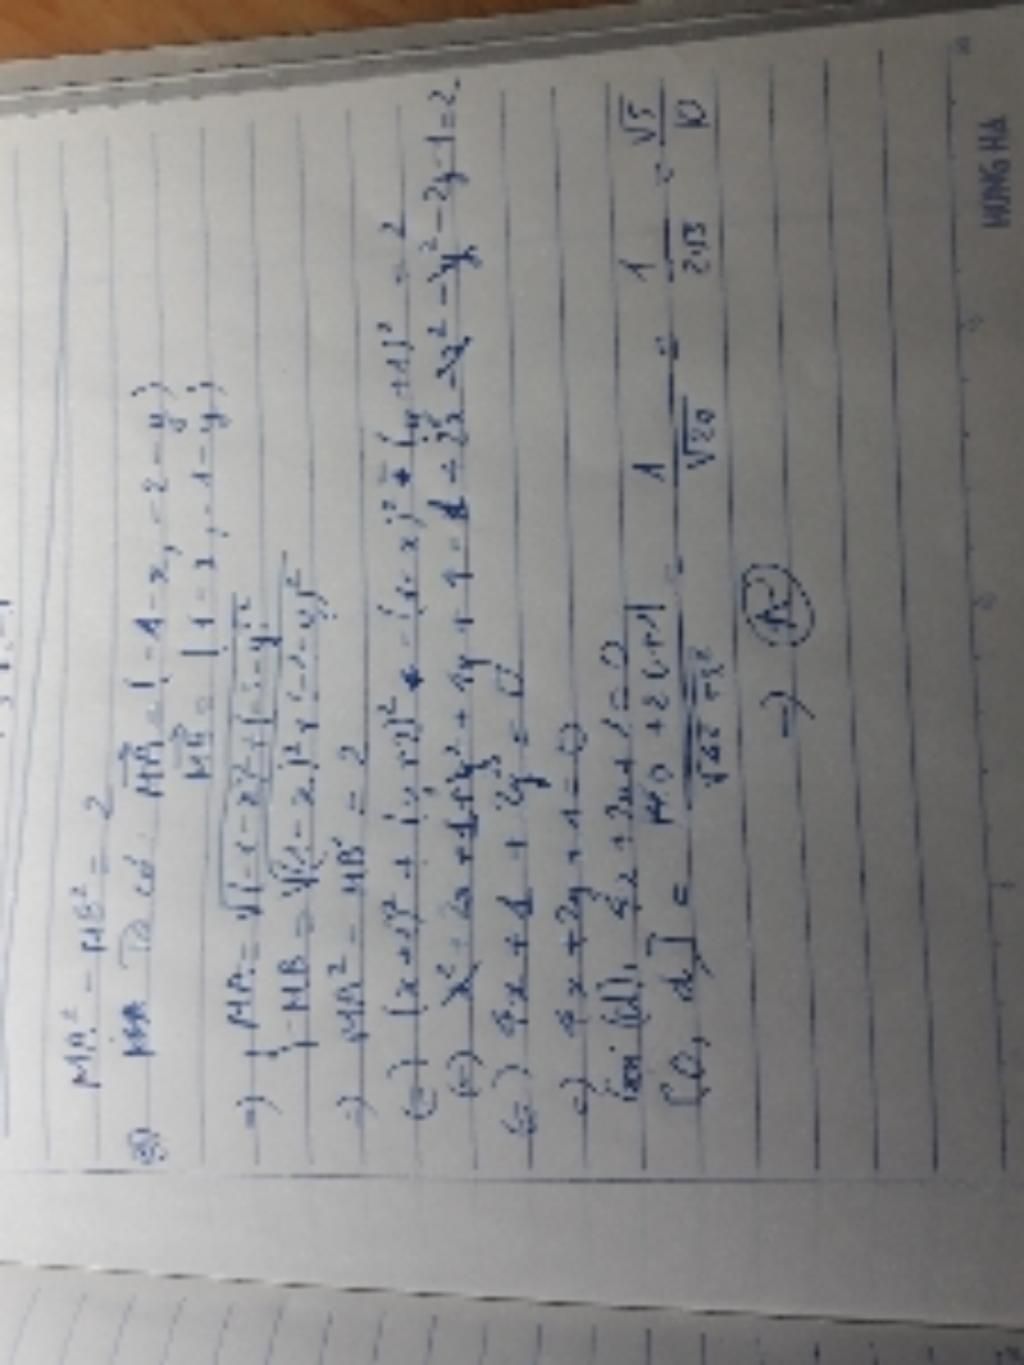 MA² - MB² = 2
Ta có: MA = (-1-x, -2-y)
MB = (1-x, -1-y)
=) { MA = √(-1-x)² + (-2-y)²
MB = √(1-x)² + (-1-y)²
=) MA² - MB² = 2
(=) (x+1)² + (y+2)² - (1-x)² - (y+1)² = 2
(=) x² + 2x + 1 + y² + 4y + 4 - 1 + 2x - x² - y² - 2y - 1 = 2
(=) 4x + 1 + 2y = 0
=) 4x + 2y + 1 = 0
(d): 4x + 2y + 1 = 0
[O, d] = |4.0 + 2.0 + 1| / √4² + 2² = 1 / √20 = 1 / 2√5 = √5 / 10
=) A
HUNG HA